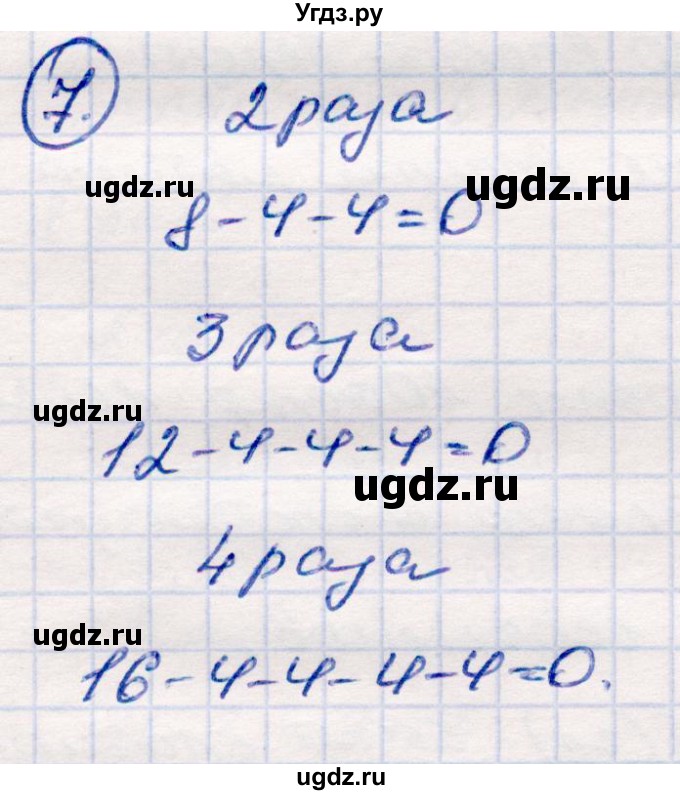 Угдз.ру
7. 2 раза
ugdz.ru ugdz.ru
8-4-4=0
3 раза
ugdz.ru
12-4-4-4=0
ugdz.ru
4 раза
ugdz.ru
16-4-4-4-4=0.
ugdz.ru